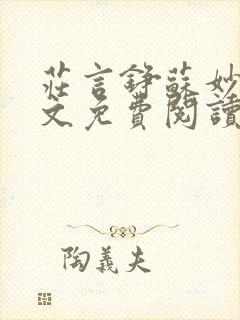 莊言錚蘇妙
文免費閱讀
陶義夫